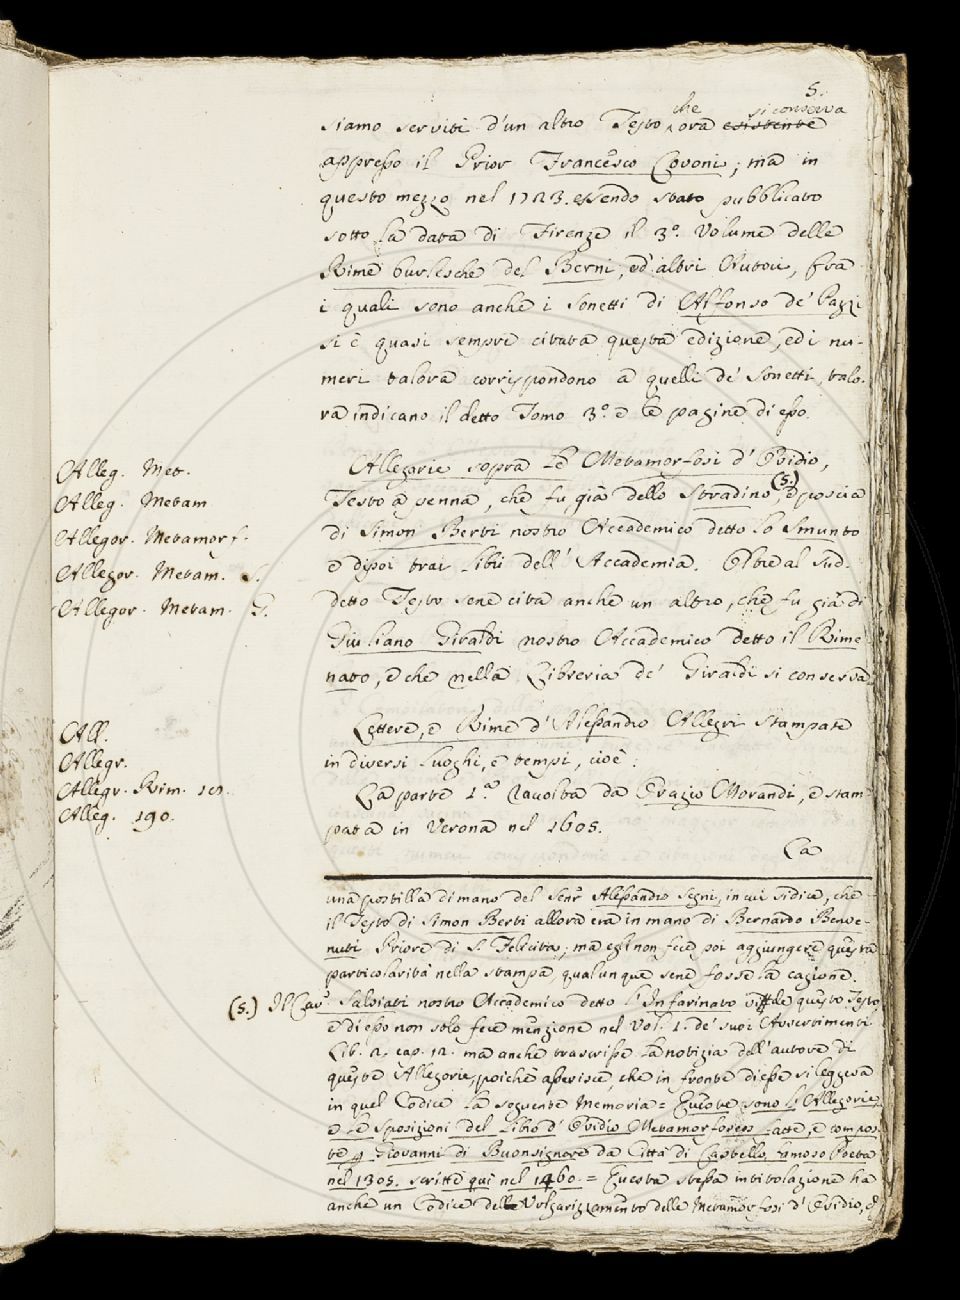 5.
siamo serviti d'un altro Testo che ora esistente si conserva
appresso il Prior Francesco Covoni; ma in
questo mezzo nel 1723. essendo stato pubblicato
sotto la data di Firenze il 3º. Volume delle
Rime burlesche del Berni, ed altri Autori, fra
i quali sono anche i Sonetti di Alfonso de' Pazzi
si è quasi sempre citata questa edizione, ed i nu-
meri talora corrispondono a quelli de' Sonetti, talo-
ra indicano il detto Tomo 3º. e le pagine di esso.
Alleg. Met.
Alleg. Metam
Allegor. Metamorf.
Allegor. Metam. S.
Allegor. Metam. G.
Allegorie sopra le Metamorfosi d' Ovidio,
Testo a penna, che fu già dello Stradino (5.), e poscia
di Simon Berti nostro Accademico detto lo Smunto
e dipoi trai libri dell' Accademia. Oltre al sud-
detto Testo sene cita anche un altro, che fu già di
Giuliano Giraldi nostro Accademico detto il Rime
nato, e che nella Libreria de' Giraldi si conserva
All.
Allegr.
Allegr. Rim. 101.
Alleg. 190.
Lettere, e Rime d'Alessandro Allegri stampate
in diversi luoghi, e tempi, cioè:
La parte 1.ª raccolta da Orazio Morandi, e stam-
pata in Verona nel 1605.
La
una postilla di mano del Senr Alessandro Segni, in cui si dice, che
il Testo di Simon Berti allora era in mano di Bernardo Benve-
nuti Priore di S. Felicita; ma egli non fece poi aggiungere questa
particolarità nella stampa, qualunque sene fosse la cagione.
(5.) Il Cavr Salviati nostro Accademico detto l' Infarinato vidde questo Testo,
e di esso non solo fece menzione nel Vol. 1. de' suoi Avvertimenti
Lib. 2. cap. 12. ma anche trascrisse la notizia dell' autore di
queste Allegorie, poichè asserisce, che in fronte di esse si leggeva
in quel Codice la seguente Memoria = Queste sono l' Allegorie,
e le Sposizioni del Libro d' Ovidio Metamorfoseos fatte, e compos-
te p Giovanni di Buonsignore da Città di Castello, famoso Poeta
nel 1305. scritte qui nel 1460. = Questa stessa intitolazione ha
anche un Codice delle Volgarizzamento delle Metamorfosi d' Ovidio, e